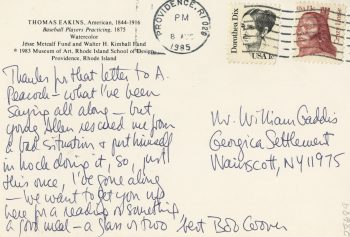 THOMAS EAKINS, American, 1844-1916
Baseball Players Practicing, 1875
Watercolor
Jesse Metcalf Fund and Walter H. Kimball Fund
© 1983 Museum of Art, Rhode Island School of Design
Providence, Rhode Island
PROVIDENCE, RI 029
PM
8 AUG
1985
Dorothea Dix
USA 1c
Thanks for that letter to A.
Peacock – what I've been
saying all along – but,
Allen rescued me from
a bad situation & put himself
in hock doing it, so, just
this once, I've gone along
– we want to get you up
here for a reading or something
a good meal – a glass or two
best Bob Coover
Mr. William Gaddis
Georgica Settlement
Wainscott, NY 11975